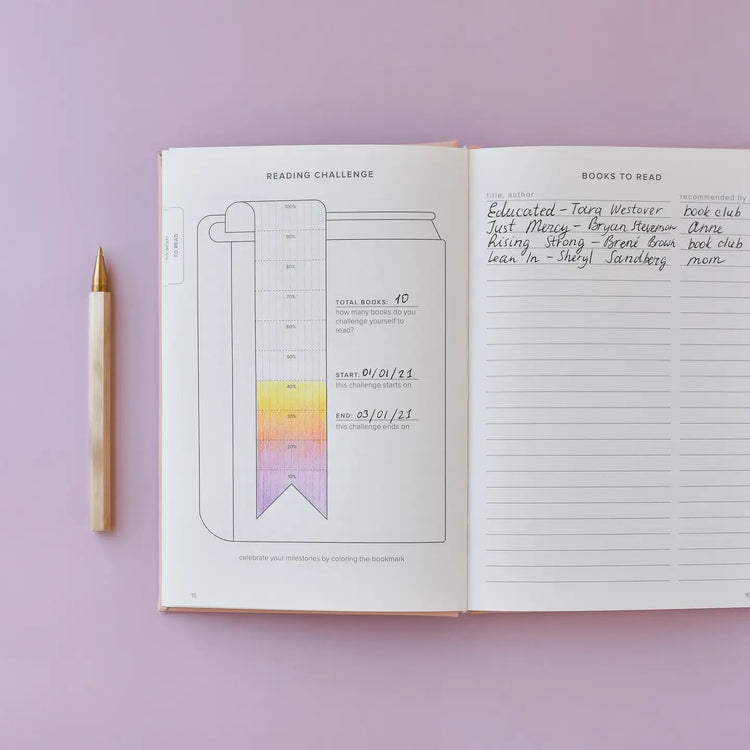 READING CHALLENGE
TO READ
TO READ
100%
90%
80%
70%
60%
50%
40%
30%
20%
10%
TOTAL BOOKS: 10
how many books do you
challenge yourself to
read?
START: 01/01/21
this challenge starts on
END: 03/01/21
this challenge ends on
celebrate your milestones by coloring the bookmark
15
BOOKS TO READ
title, author recommended by
Educated - Tara Westover book club
Just Mercy - Bryan Stevenson Anne
Rising Strong - Brené Brown book club
Lean In - Sheryl Sandberg mom
16